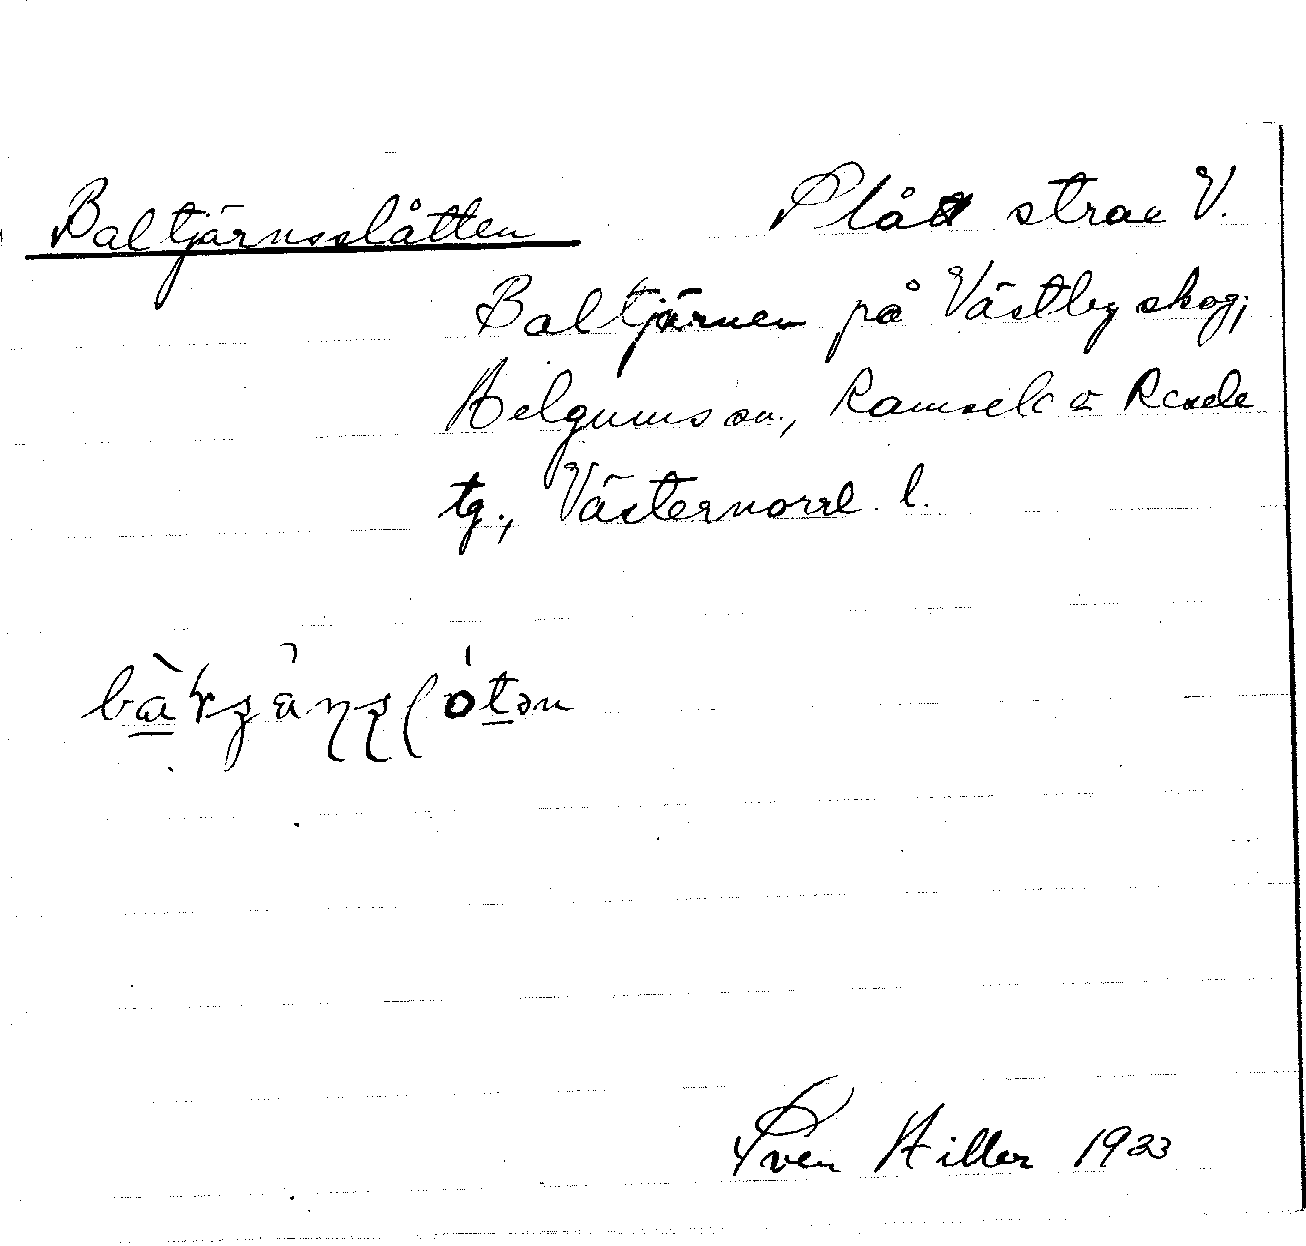 Baltjärnsslåtten
Slått strax V.
Baltjärnen på Västby skog,
Helgums sn., Ramsele o Resele
tg., Västernorrl. l.
Sven Hiller 1933